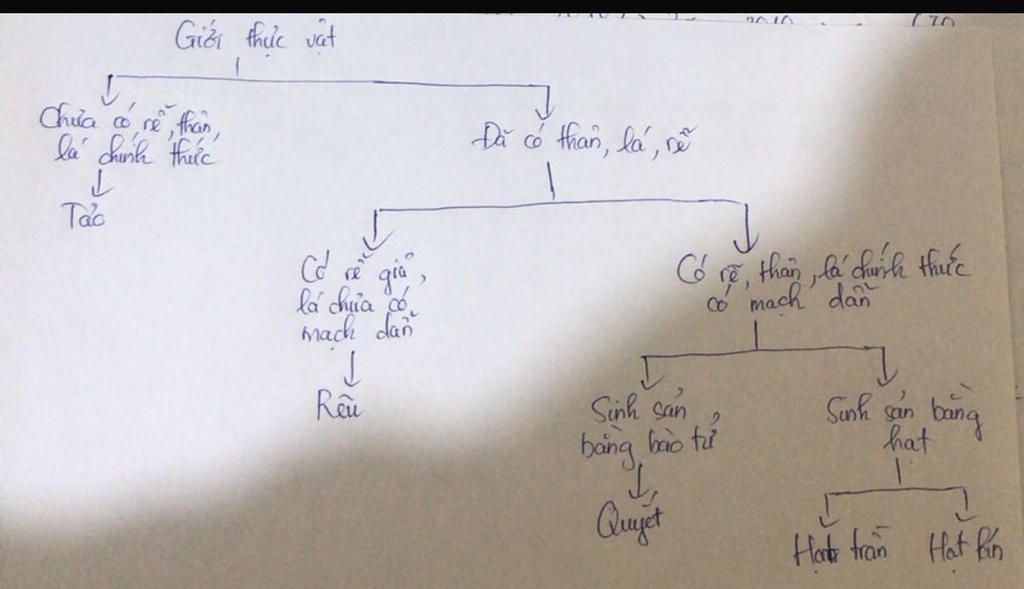 Giới thực vật
Chưa có rễ, thân,
lá chính thức
Tảo
Đã có thân, lá, rễ
Có rễ giả,
lá chưa có
mạch dẫn
Rêu
Có rễ, thân, lá chính thức
có mạch dẫn
Sinh sản
bằng bào tử
Quyết
Sinh sản bằng
hạt
Hạt trần
Hạt kín